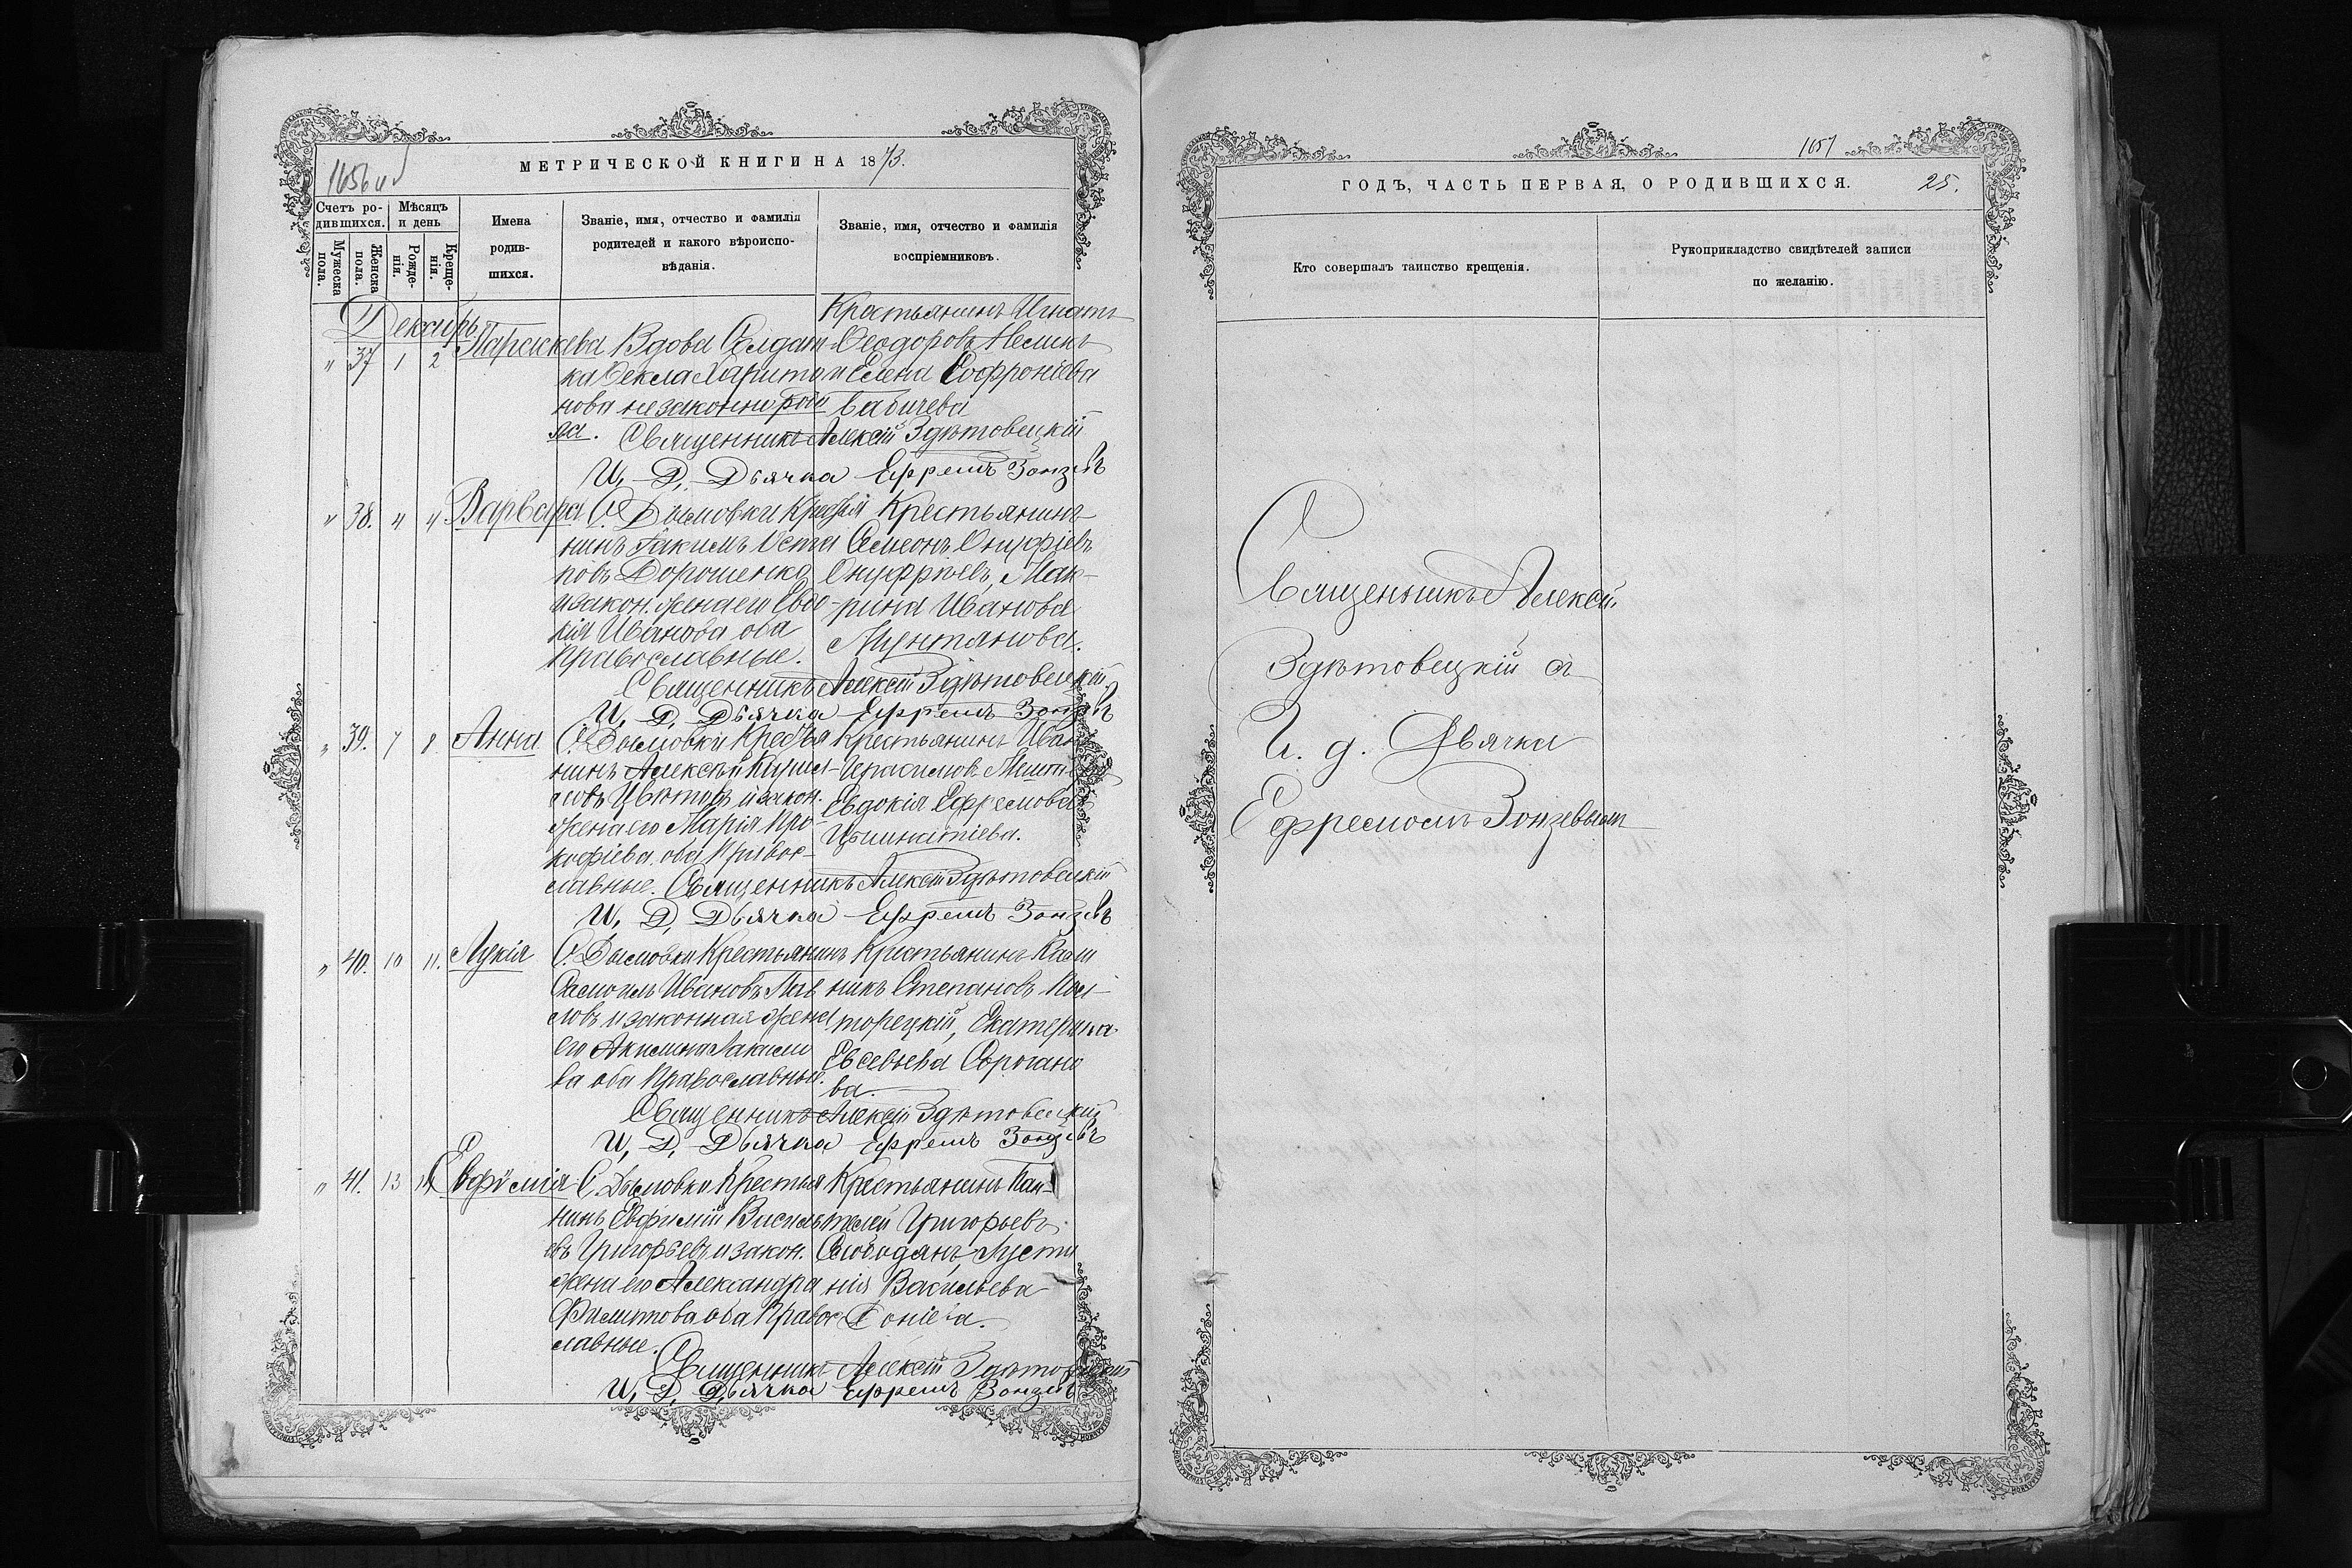 1656
МЕТРИЧЕСКОЙ КНИГИ НА 1873.
Счетъ ро-
дившихся.
Мѣсяцъ
и день
Мужеска
пола.
Женска
пола.
Рожде-
нія.
Креще-
нія.
Имена
родив-
шихся.
Званіе, имя, отчество и фамилія
родителей и какого вѣроиспо-
вѣданія.
Званіе, имя, отчество и фамилія
воспріемниковъ.
Декабрь
" 37 1 2 Параскева
Вдова Солдат-
ка Ѳекла Харито
нова незаконнорож
ная.
Крестьянинъ Игнатъ
Ѳеодоровъ
и Елена Софроніева
Бабичева
Священникъ Алексій Здѣтовецкій
И. Д. Дьячка Ефремъ Зонзевъ
" 38. " " Варвара
С. Дымовки Кресья
нинъ Іакимъ Оста
повъ Дорошенко
и закон. жена его Евдо
кія Иванова оба
Православные.
Крестьянинъ
Симеонъ Онуфріевъ
Онуфріевъ, Мак-
рина Иванова
Мунтянова.
Священникъ Алексій Здѣтовецкій
И. Д. Дьячка Ефремъ Зонзевъ
" 39. 7 8. Анна
С. Дымовки Кресья
нинъ Алексѣй Кирил-
ловъ и закон.
жена его Марія Про-
кофіева оба Правос-
лавные.
Крестьянинъ Иван
Герасимовъ
Евдокія Ефремова
Священникъ Алексій Здѣтовецкій
И. Д. Дьячка Ефремъ Зонзевъ
" 40. 10 11. Лукія
С. Дымовки Крестьянинъ
Самоилъ Ивановъ Пав
ловъ и законная жена
его Акилина
ва оба Православные.
Крестьянинъ Кали
никъ Степановъ
Екатерина
Евсевьева
ва.
Священникъ Алексій Здѣтовецкій
И. Д. Дьячка Ефремъ Зонзевъ
" 41. 13 Евфимія
С. Дымовки Крестья
нинъ Евфимій Василь
евъ Григорьевъ и закон.
жена его Александра
Филиппова оба Правос
лавные.
Крестьянинъ Пан-
телей Григорьевъ
Слободянъ, Іусти
нія Васильева
Доніева.
Священникъ Алексій Здѣтовецкій
И. Д. Дьячка Ефремъ Зонзевъ
1657
ГОДЪ, ЧАСТЬ ПЕРВАЯ, О РОДИВШИХСЯ. 25.
Кто совершалъ таинство крещенія.
Рукоприкладство свидѣтелей записи
по желанію.
Священникъ Алексій
Здѣтовецкій съ
И. д. Дьячка
Ефремомъ Зонзевымъ